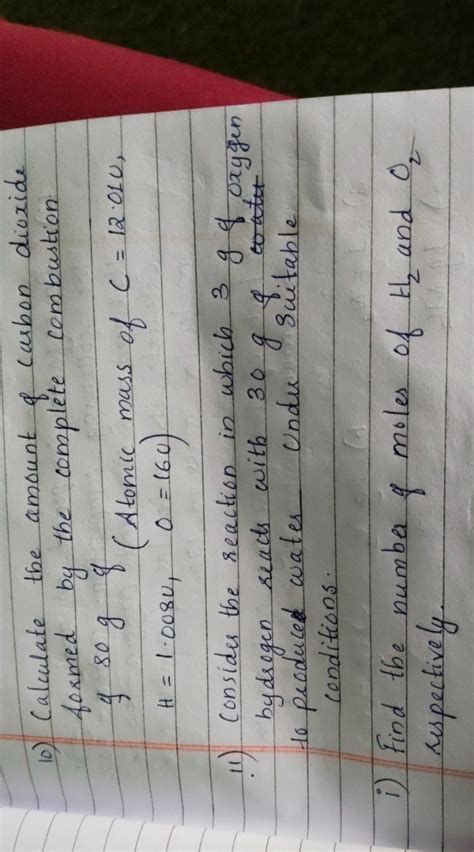 10) Calculate the amount of carbon dioxide
formed by the complete combustion
of 80 g of (Atomic mass of C = 12.01U,
H = 1.008U, O = 16U)
11) Consider the reaction in which 3 g of
hydrogen reacts with 30 g of oxygen
to produced water under suitable
conditions.
i) Find the number of moles of H₂ and O₂
respectively.